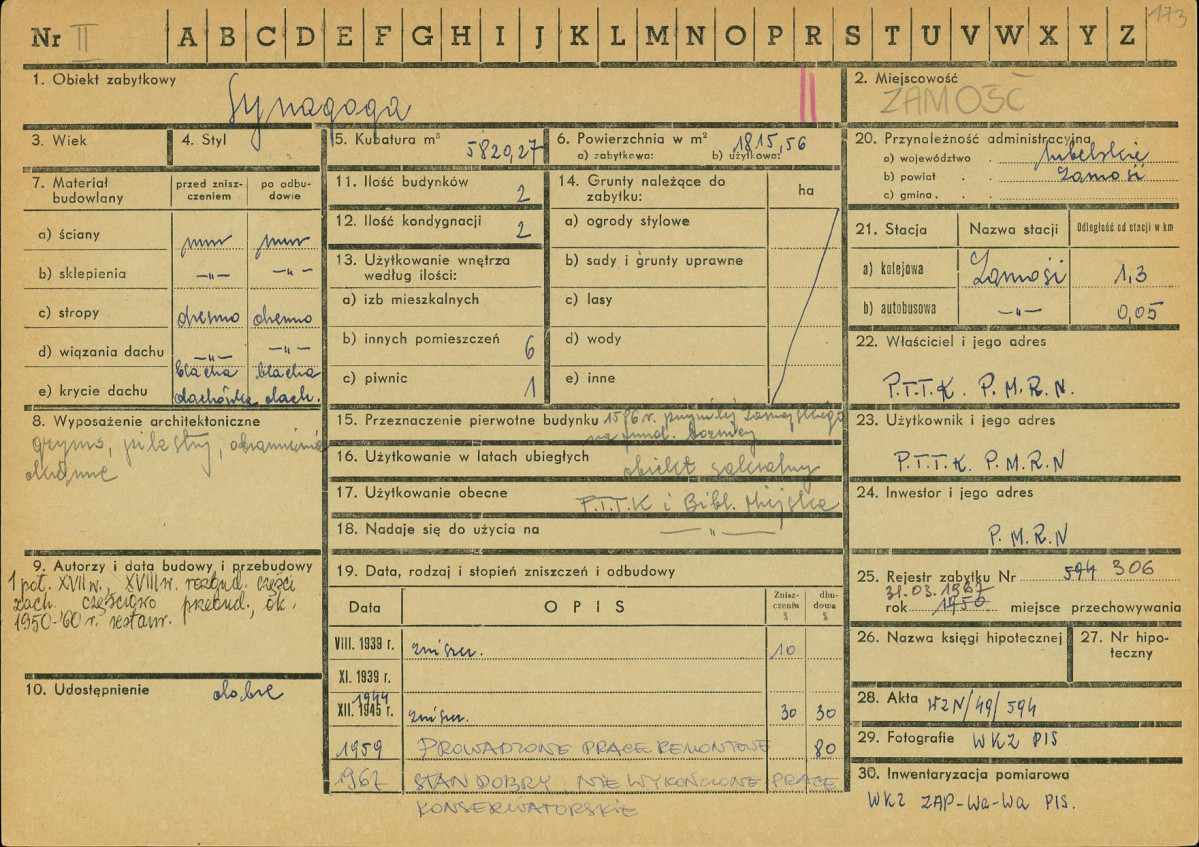 Nr II A B C D E F G H I J K L M N O P R S T U V W X Y Z 173
1. Obiekt zabytkowy
Synagoga
2. Miejscowość
ZAMOŚĆ
3. Wiek
4. Styl
5. Kubatura m³ 5820,27
6. Powierzchnia w m² 1815,56
a) zabytkowa: b) użytkowa:
7. Materiał budowlany
przed zniszczeniem
po odbudowie
a) ściany mur mur
b) sklepienia —„— —„—
c) stropy drewno drewno
d) wiązania dachu —„— —„—
blacha blacha
e) krycie dachu dachówka dach.
8. Wyposażenie architektoniczne
gzyms, pilastry, obramienia
okienne
9. Autorzy i data budowy i przebudowy
1 poł. XVII w., XVIII w. rozbud. części
zach. częściowo przebud., ok.
1950-'60 r. restaur.
10. Udostępnienie dobre
11. Ilość budynków 2
12. Ilość kondygnacji 2
13. Użytkowanie wnętrza
według ilości:
a) izb mieszkalnych
b) innych pomieszczeń 6
c) piwnic 1
14. Grunty należące do
zabytku:
ha
a) ogrody stylowe
b) sady i grunty uprawne
c) lasy
d) wody
e) inne
15. Przeznaczenie pierwotne budynku 1576 r. przywilej Zamojskiego
na fund. bożnicy
16. Użytkowanie w latach ubiegłych obiekt sakralny
17. Użytkowanie obecne P.T.T.K i Bibl. Miejska
18. Nadaje się do użycia na —„—
19. Data, rodzaj i stopień zniszczeń i odbudowy
Data
OPIS
Zniszczeniu %
dbudowa %
VIII. 1939 r. zniszcz. 10
XI. 1939 r.
1944
XII. 1945 r. zniszcz. 30 30
1959 PROWADZONE PRACE REMONTOWE 80
1967 STAN DOBRY NIE WYKOŃCZONE PRACE
KONSERWATORSKIE
20. Przynależność administracyjna
a) województwo lubelskie
b) powiat Zamość
c) gmina
21. Stacja
Nazwa stacji
Odległość od stacji w km
a) kolejowa Zamość 1,3
b) autobusowa —„— 0,05
22. Właściciel i jego adres
P.T.T.K. P.M.R.N.
23. Użytkownik i jego adres
P.T.T.K. P.M.R.N
24. Inwestor i jego adres
P.M.R.N
25. Rejestr zabytku Nr 594 306
31.03.1967
rok 1950 miejsce przechowywania
26. Nazwa księgi hipotecznej
27. Nr hipoteczny
28. Akta WZN/49/594
29. Fotografie WKZ PIS
30. Inwentaryzacja pomiarowa
WKZ ZAP-Wa-Wa PIS.